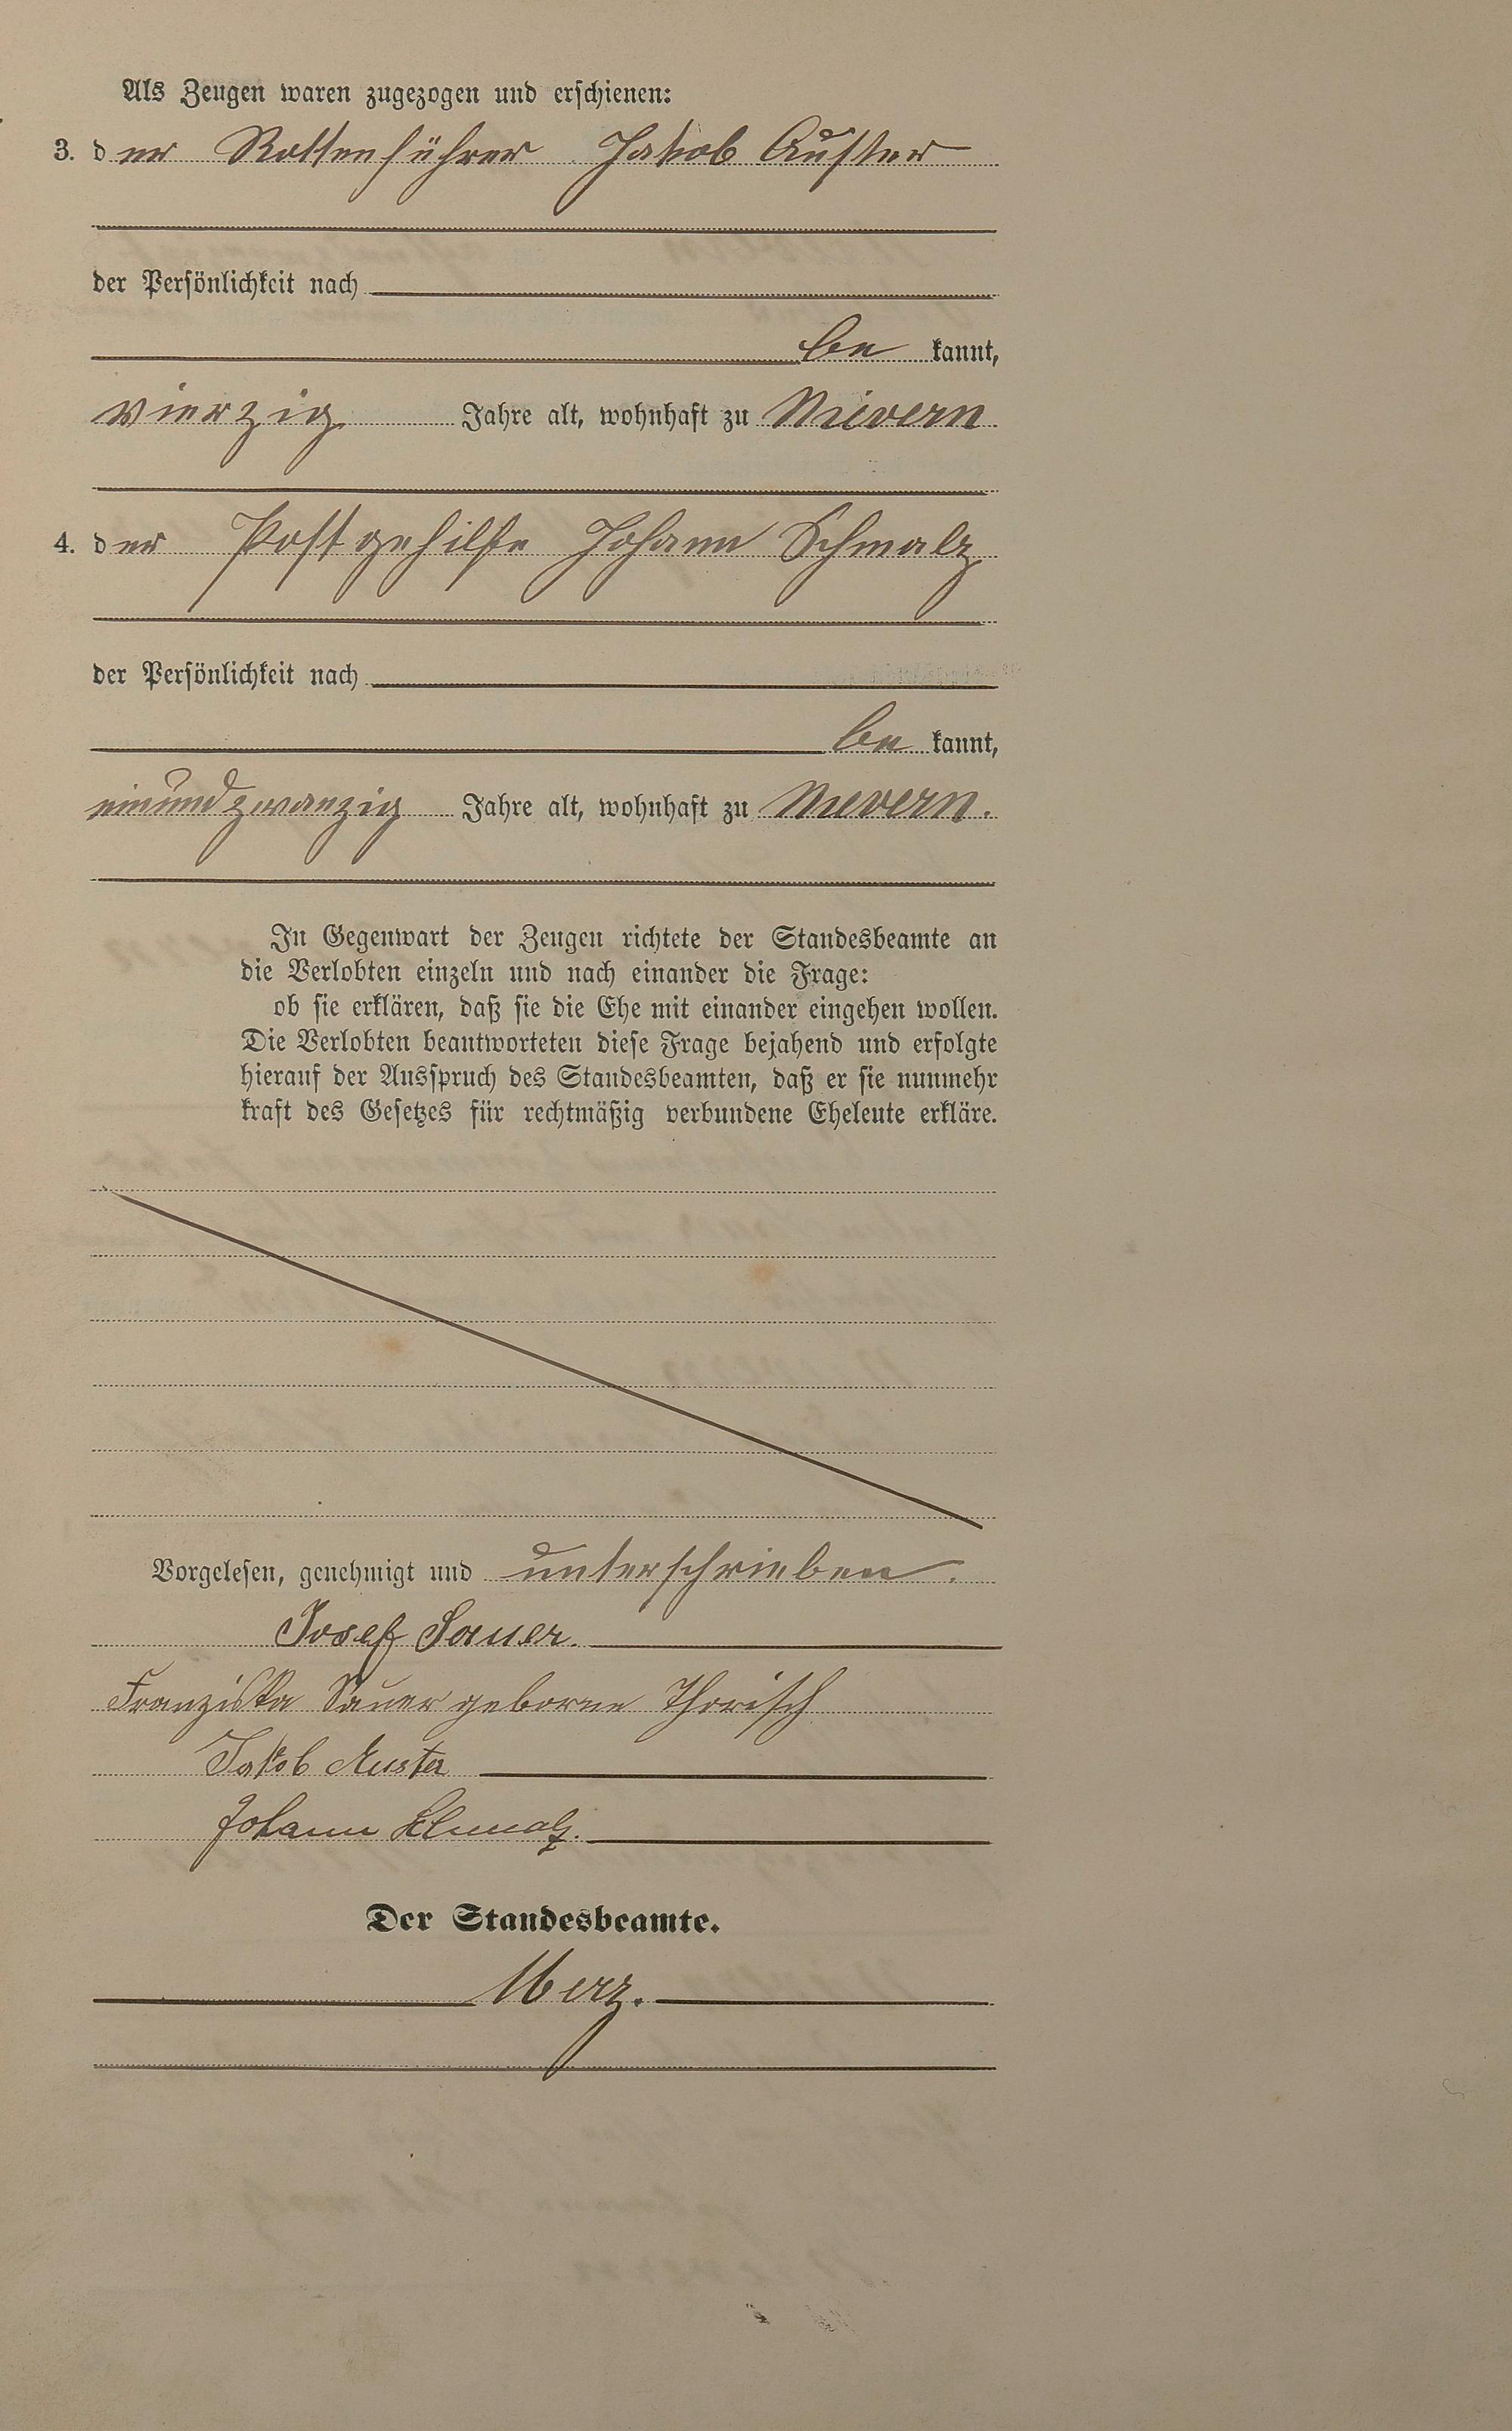 Als Zeugen waren zugezogen und erschienen:
3. der Rottenführer Jakob Auster
der Persönlichkeit nach
be kannt,
vierzig Jahre alt, wohnhaft zu Nievern
4. der Postgehilfe Johann Schmalz
der Persönlichkeit nach
be kannt,
einundzwanzig Jahre alt, wohnhaft zu Nievern.
In Gegenwart der Zeugen richtete der Standesbeamte an
die Verlobten einzeln und nach einander die Frage:
ob sie erklären, daß sie die Ehe mit einander eingehen wollen.
Die Verlobten beantworteten diese Frage bejahend und erfolgte
hierauf der Ausspruch des Standesbeamten, daß er sie nunmehr
kraft des Gesetzes für rechtmäßig verbundene Eheleute erkläre.
Vorgelesen, genehmigt und unterschrieben.
Josef Sauer.
Franziska Sauer geborne Thorisch
Jakob Auster
Johann Schmalz.
Der Standesbeamte.
Merz.